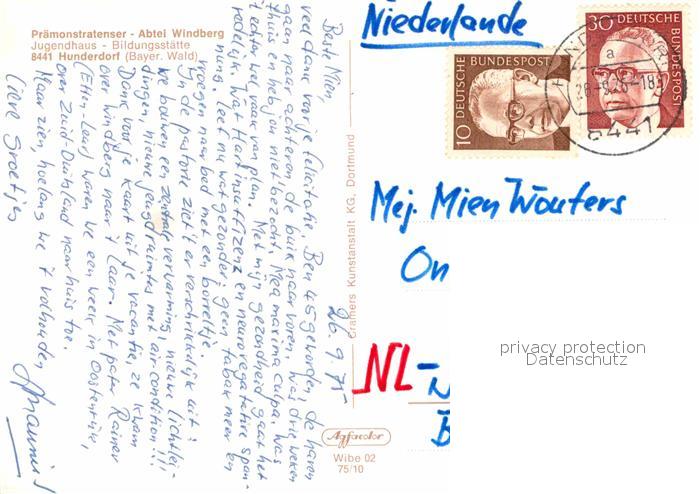 Prämonstratenser - Abtei Windberg
Jugendhaus - Bildungsstätte
8441 Hunderdorf (Bayer. Wald)
26.9.75
Beste Mien
veel dank voor je felicitatie. Ben 45 geworden, de haren
gaan naar achteren de buik naar voren. Was drie weken
thuis en heb jou niet bezocht. Mea maxima culpa. Was
echter wel van plan. Met mijn gezondheid gaat het
redelijk. Wat Hartinsuffizenz en neurovegetative span-
nung. Leef nu wat gezonder; geen tabak meer en
vroegen naar bed met een borreltje.
In de pastorie ziet 't er verschrikkelijk uit!
We bouwen een zentrale verwarming, nieuwe lichtlei-
dingen, nieuwe jeugdruimtes met air-condition!!!
Dank voor je kaart uit je vacantie, ze kwam
over Windberg naar 't Laar. Met pater Rainer
waren we een week in Oostenrijk,
over Zuid-Duitsland naar huis toe.
Maar zien, hoelang we 't volhouden
Lieve Groetjes
Cramers Kunstanstalt KG, Dortmund
Agfacolor
Wibe 02
75/10
Niederlande
10 DEUTSCHE BUNDESPOST
30 DEUTSCHE BUNDESPOST
a
8441
Mej. Mien Wouters
On
NL-
B
privacy protection
Datenschutz